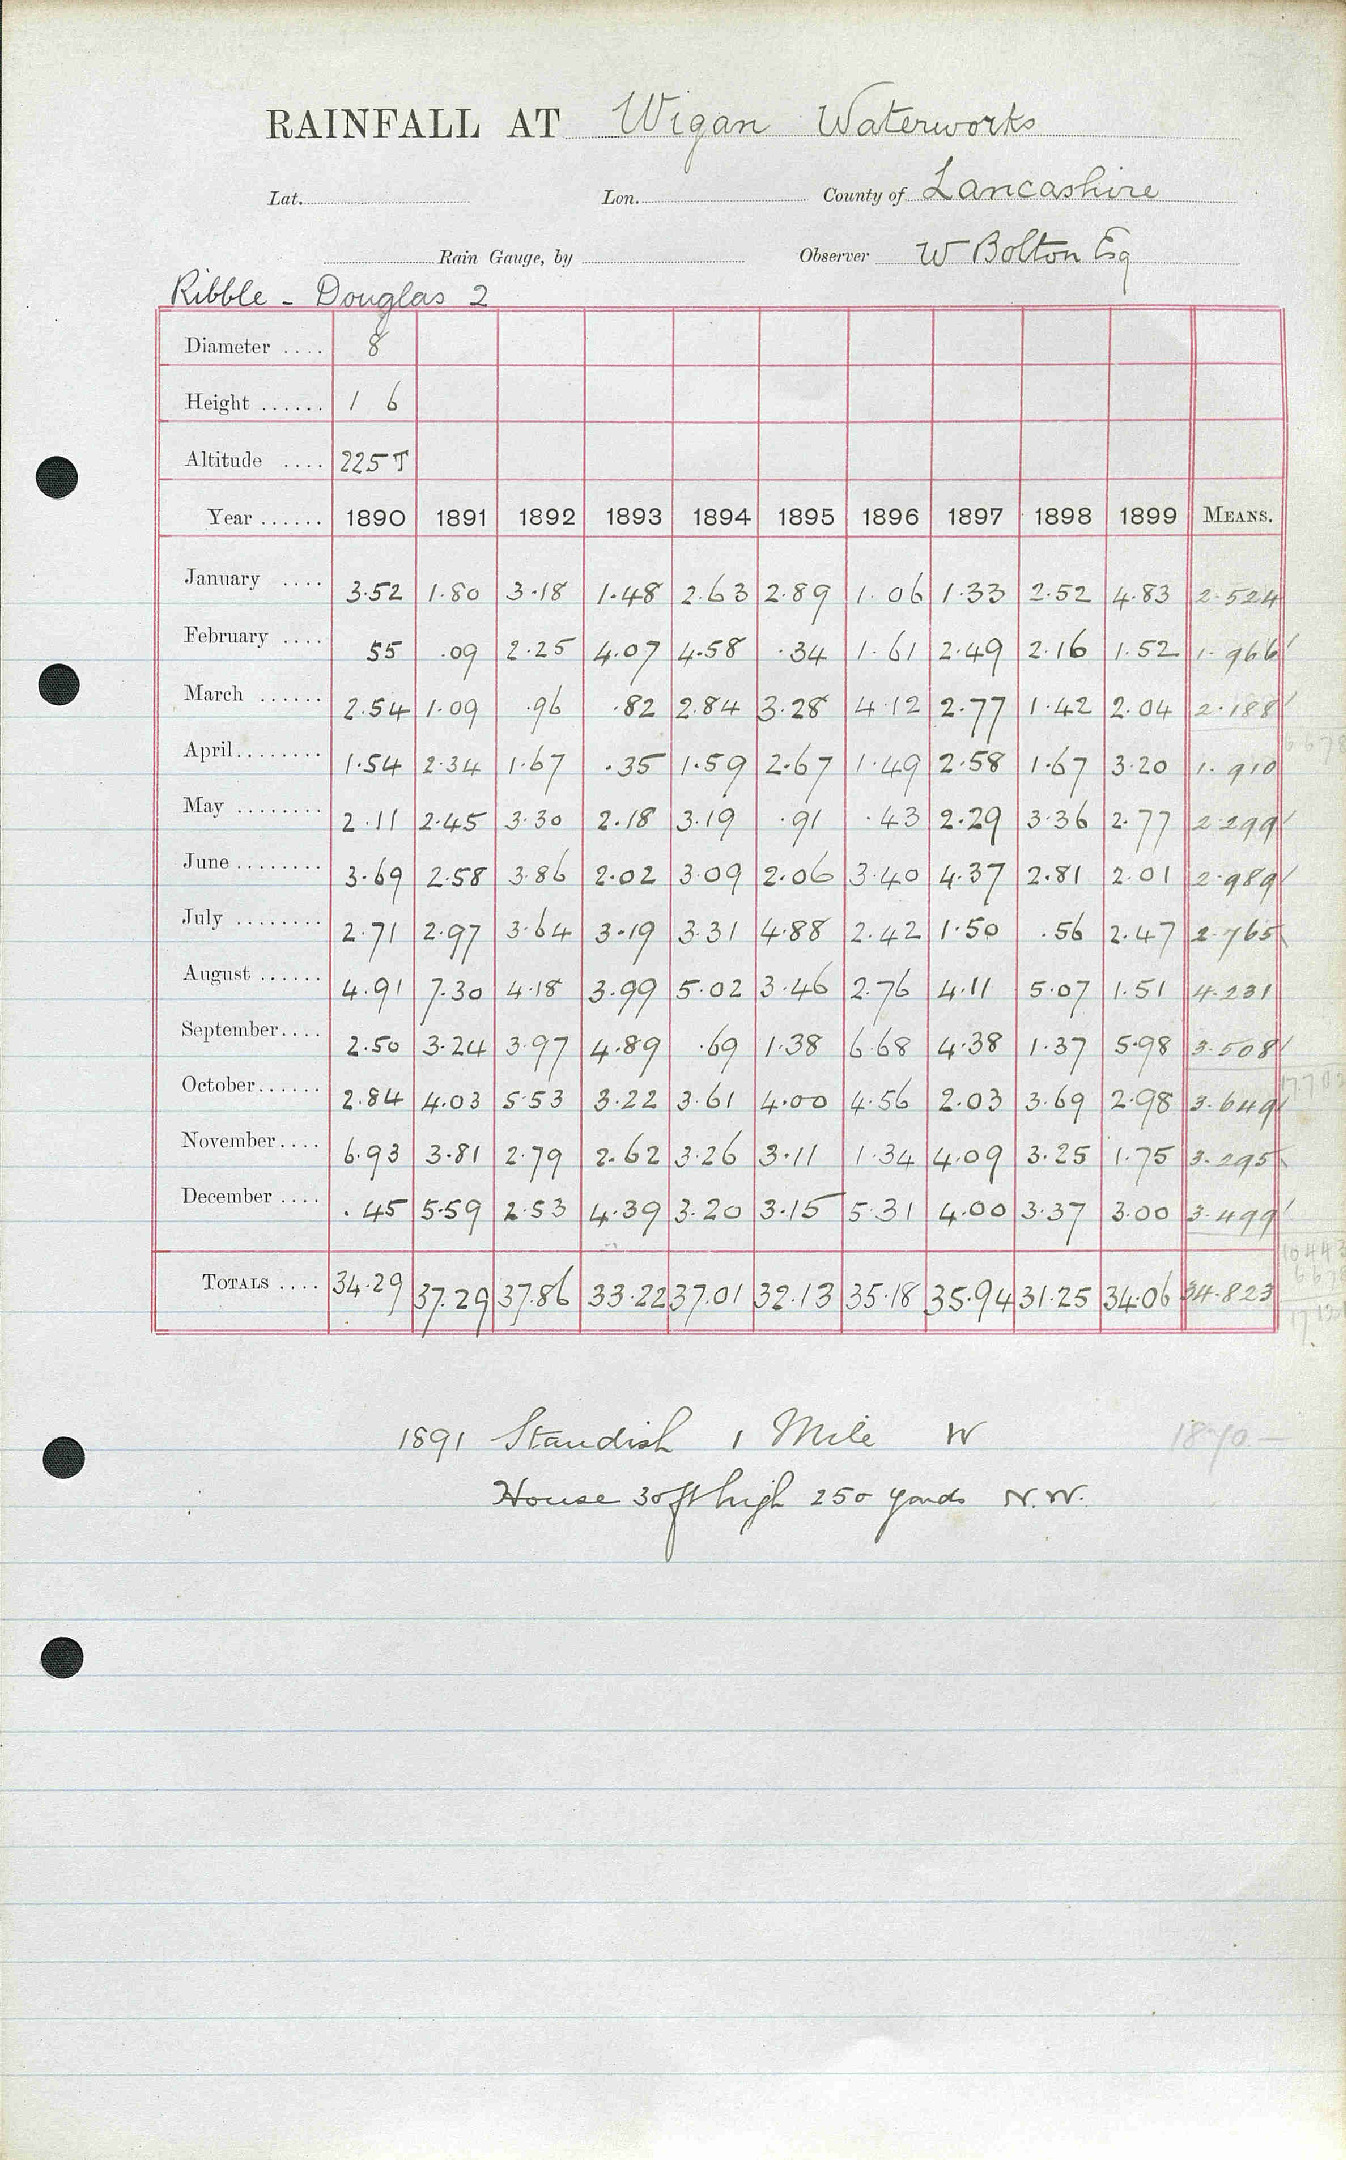 RAINFALL AT Wigan Waterworks
Lat. Lon. County of Lancashire
Rain Gauge, by Observer W Bolton Esq
Ribble - Douglas 2
Diameter .... 8
Height ...... 1 6
Altitude .... 225 T
Year ...... 1890 1891 1892 1893 1894 1895 1896 1897 1898 1899 MEANS.
January .... 3.52 1.80 3.18 1.48 2.63 2.89 1.06 1.33 2.52 4.83 2.524
February .... 55 .09 2.25 4.07 4.58 .34 1.61 2.49 2.16 1.52 1.966
March ...... 2.54 1.09 .96 .82 2.84 3.28 4.12 2.77 1.42 2.04 2.188
6678
April........ 1.54 2.34 1.67 .35 1.59 2.67 1.49 2.58 1.67 3.20 1.910
May ........ 2.11 2.45 3.30 2.18 3.19 .91 .43 2.29 3.36 2.77 2.299
June ........ 3.69 2.58 3.86 2.02 3.09 2.06 3.40 4.37 2.81 2.01 2.989
July ........ 2.71 2.97 3.64 3.19 3.31 4.88 2.42 1.50 .56 2.47 2.765
August ...... 4.91 7.30 4.18 3.99 5.02 3.46 2.76 4.11 5.07 1.51 4.231
September.... 2.50 3.24 3.97 4.89 .69 1.38 6.68 4.38 1.37 5.98 3.508
October...... 2.84 4.03 5.53 3.22 3.61 4.00 4.56 2.03 3.69 2.98 3.649
November.... 6.93 3.81 2.79 2.62 3.26 3.11 1.34 4.09 3.25 1.75 3.295
December .... .45 5.59 2.53 4.39 3.20 3.15 5.31 4.00 3.37 3.00 3.499
10443
6678
TOTALS .... 34.29 37.29 37.86 33.22 37.01 32.13 35.18 35.94 31.25 34.06 34.823
1891 Standish 1 Mile W 1870 -
House 30ft high 250 yards N.W.